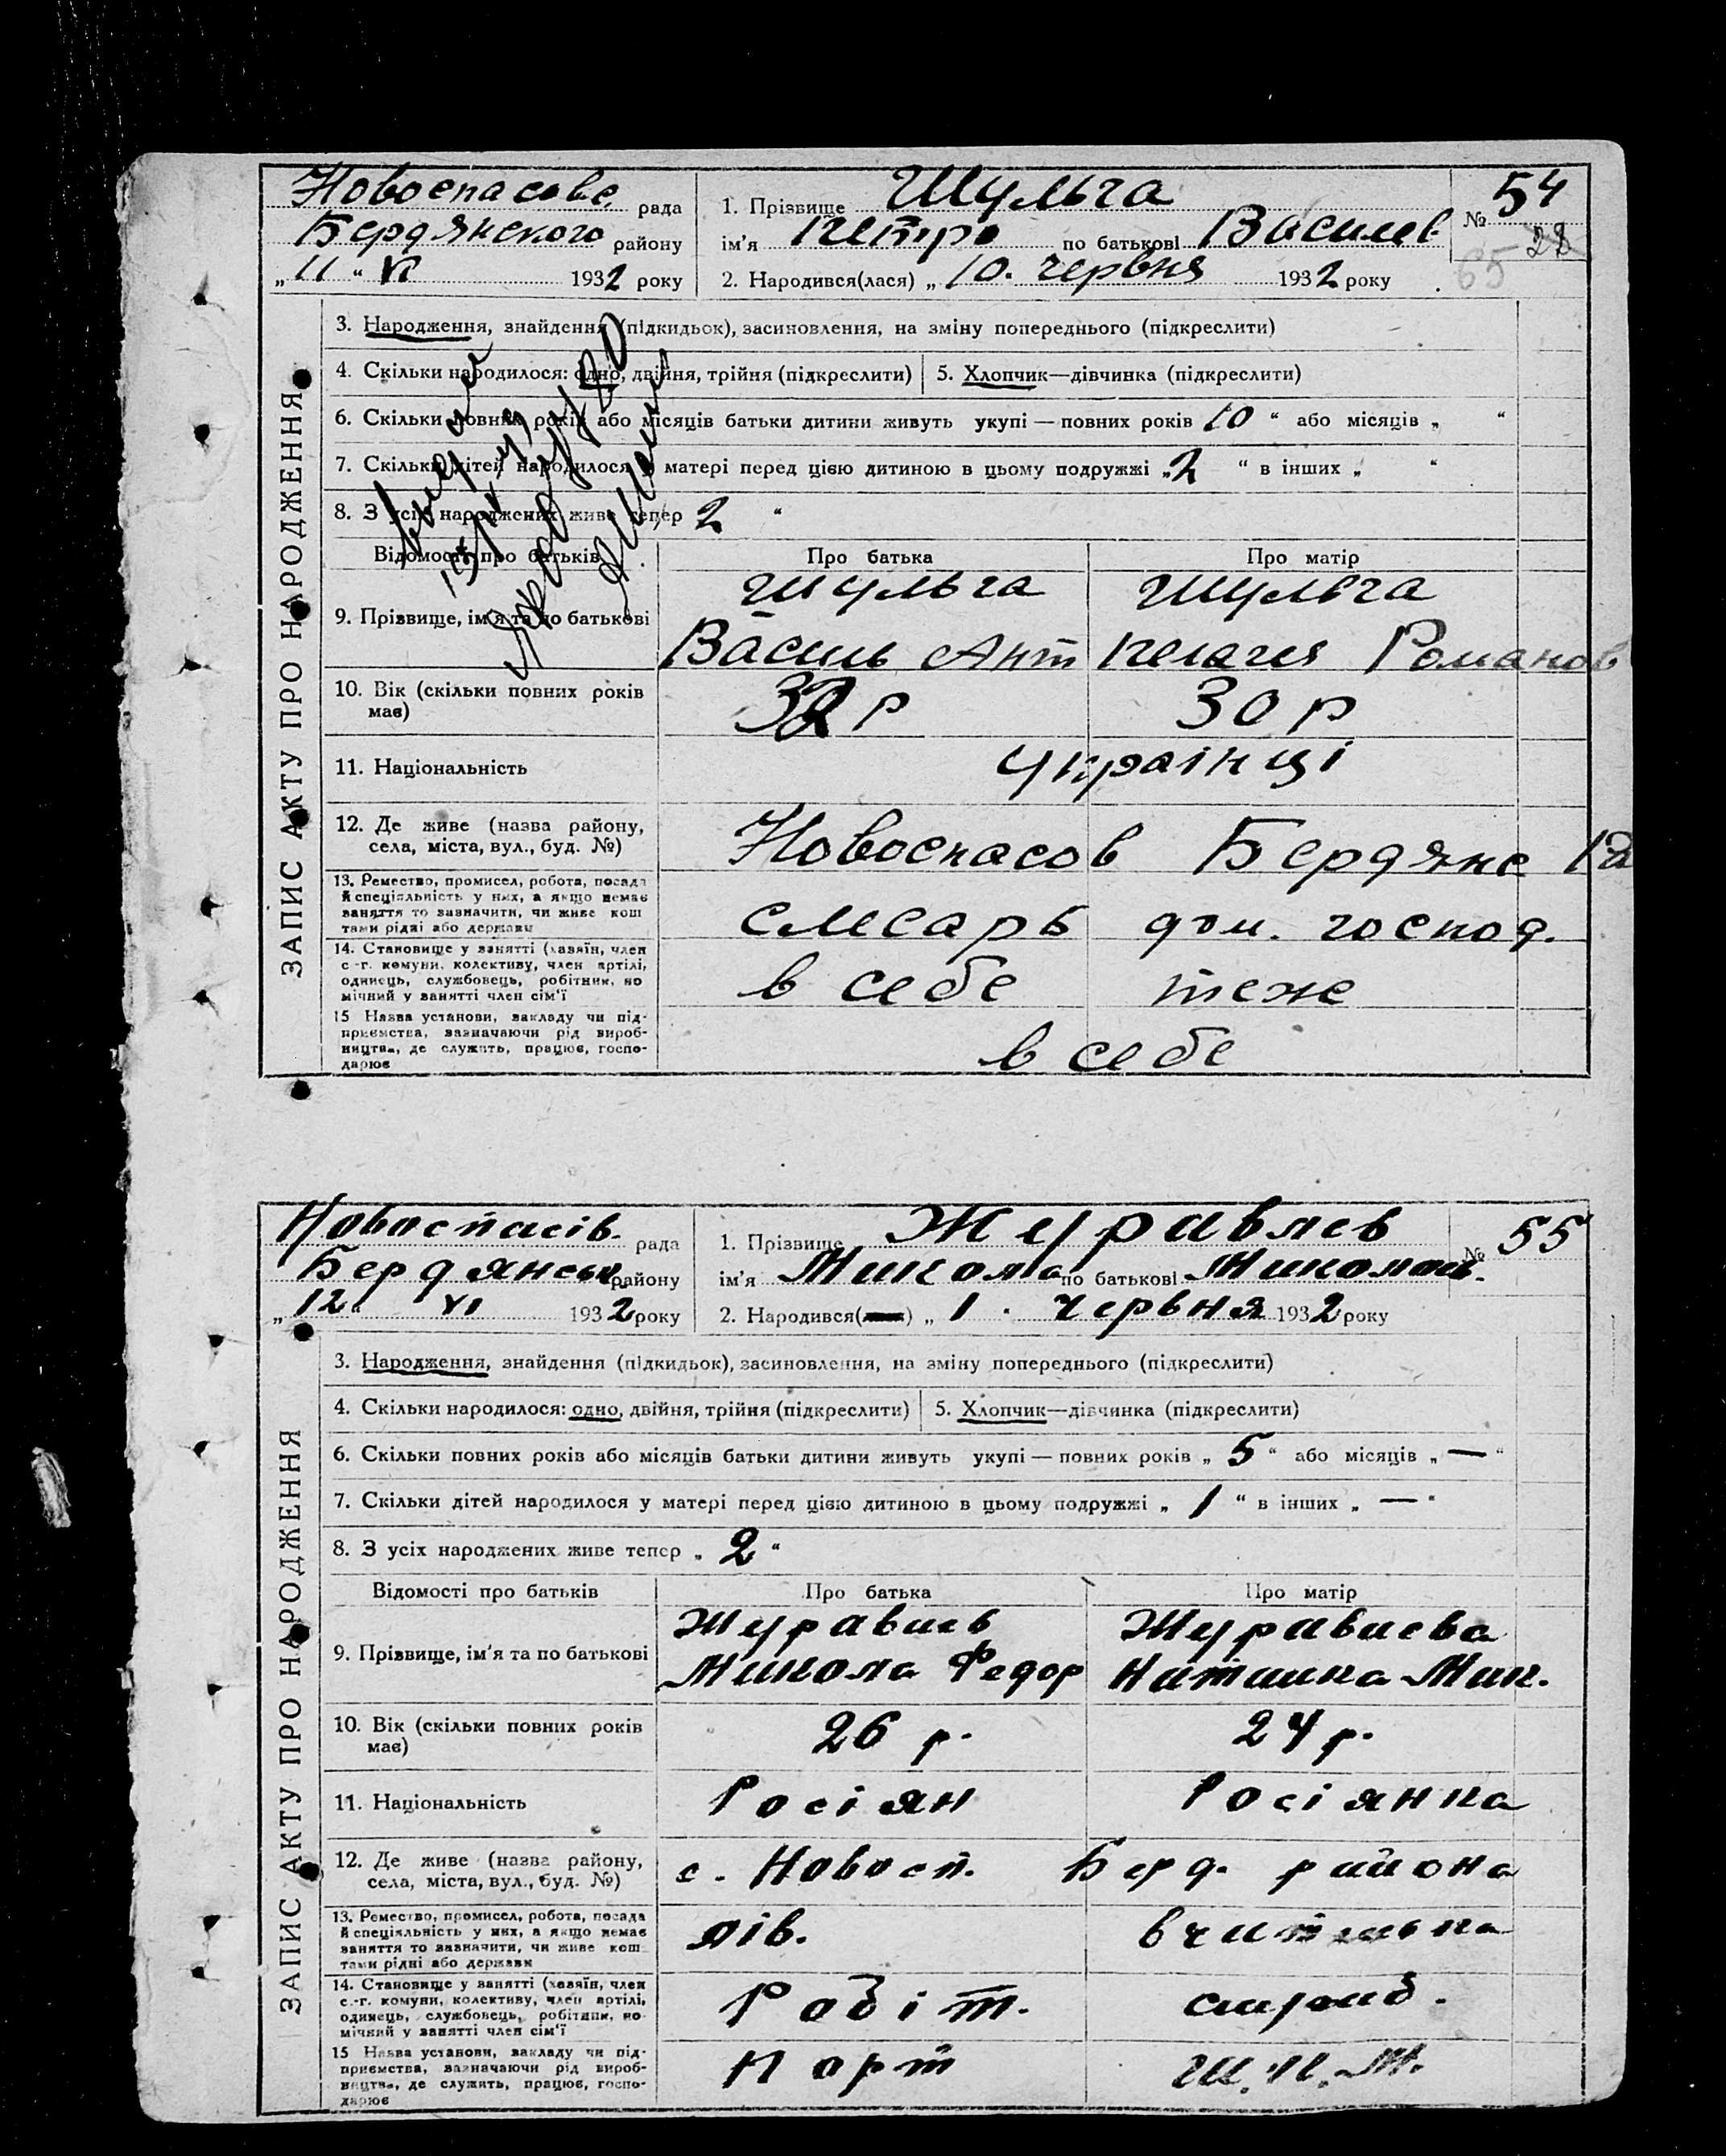 Новоспасовс. рада
Бердянского району
„11“ VI 1932 року
1. Прізвище Шульга
ім'я Петро по батькові Василев.
2. Народився(лася) „10. червня 1932 року
№ 54
28
65
ЗАПИС АКТУ ПРО НАРОДЖЕННЯ
3. Народження, знайдення (підкидьок), засиновлення, на зміну попереднього (підкреслити)
4. Скільки народилося: одно, двійня, трійня (підкреслити) 5. Хлопчик—дівчинка (підкреслити)
6. Скільки повних років або місяців батьки дитини живуть укупі — повних років 10 “ або місяців „ “
7. Скільки дітей народилося у матері перед цією дитиною в цьому подружжі „2 “ в інших „ “
8. З усіх народжених живе тепер 2 “
Відомості про батьків Про батька Про матір
9. Прізвище, ім'я та по батькові
Шульга Шульга
Василь Ант Пелагея Романов
10. Вік (скільки повних років
має)
32 р 30 р
11. Національність українці
12. Де живе (назва району,
села, міста, вул., буд. №)
Новоспасов Бердянс
13. Ремество, промисел, робота, посада
й спеціяльність у них, а якщо немає
заняття то зазначити, чи живе кош
тами рідні або держави
слесарь дом. господ.
14. Становище у занятті (хазяїн, член
с.-г. комуни, колективу, член артілі,
одинець, службовець, робітник, по
мічний у занятті член сім'ї
в себе теже
15 Назва установи, закладу чи під-
приємства, зазначаючи рід вироб-
ництва, де служить, працює, госпо-
дарює
в себе
Новоспасів. рада
Бердянськ району
„12“ VI 1932 року
1. Прізвище Журавлев
ім'я Микола по батькові Миколаев.
2. Народився( ) „ 1 . червня 1932 року
№ 55
ЗАПИС АКТУ ПРО НАРОДЖЕННЯ
3. Народження, знайдення (підкидьок), засиновлення, на зміну попереднього (підкреслити)
4. Скільки народилося: одно, двійня, трійня (підкреслити) 5. Хлопчик—дівчинка (підкреслити)
6. Скільки повних років або місяців батьки дитини живуть укупі — повних років „ 5 “ або місяців „ — “
7. Скільки дітей народилося у матері перед цією дитиною в цьому подружжі „ 1 “ в інших „ — “
8. З усіх народжених живе тепер „ 2 “
Відомості про батьків Про батька Про матір
9. Прізвище, ім'я та по батькові
Журавлев Журавлева
Микола Федор Наташка Мик.
10. Вік (скільки повних років
має)
26 р. 24 р.
11. Національність Росіян Росіянка
12. Де живе (назва району,
села, міста, вул., буд. №)
с. Новосп. Берд. района
13. Ремество, промисел, робота, посада
й спеціяльність у них, а якщо немає
заняття то зазначити, чи живе кош
тами рідні або держави
вчителька
14. Становище у занятті (хазяїн, член
с.-г. комуни, колективу, член артілі,
одинець, службовець, робітник, по
мічний у занятті член сім'ї
Робіт. служб.
15 Назва установи, закладу чи під-
приємства, зазначаючи рід вироб-
ництва, де служить, працює, госпо-
дарює
Порт Ш.К.М.